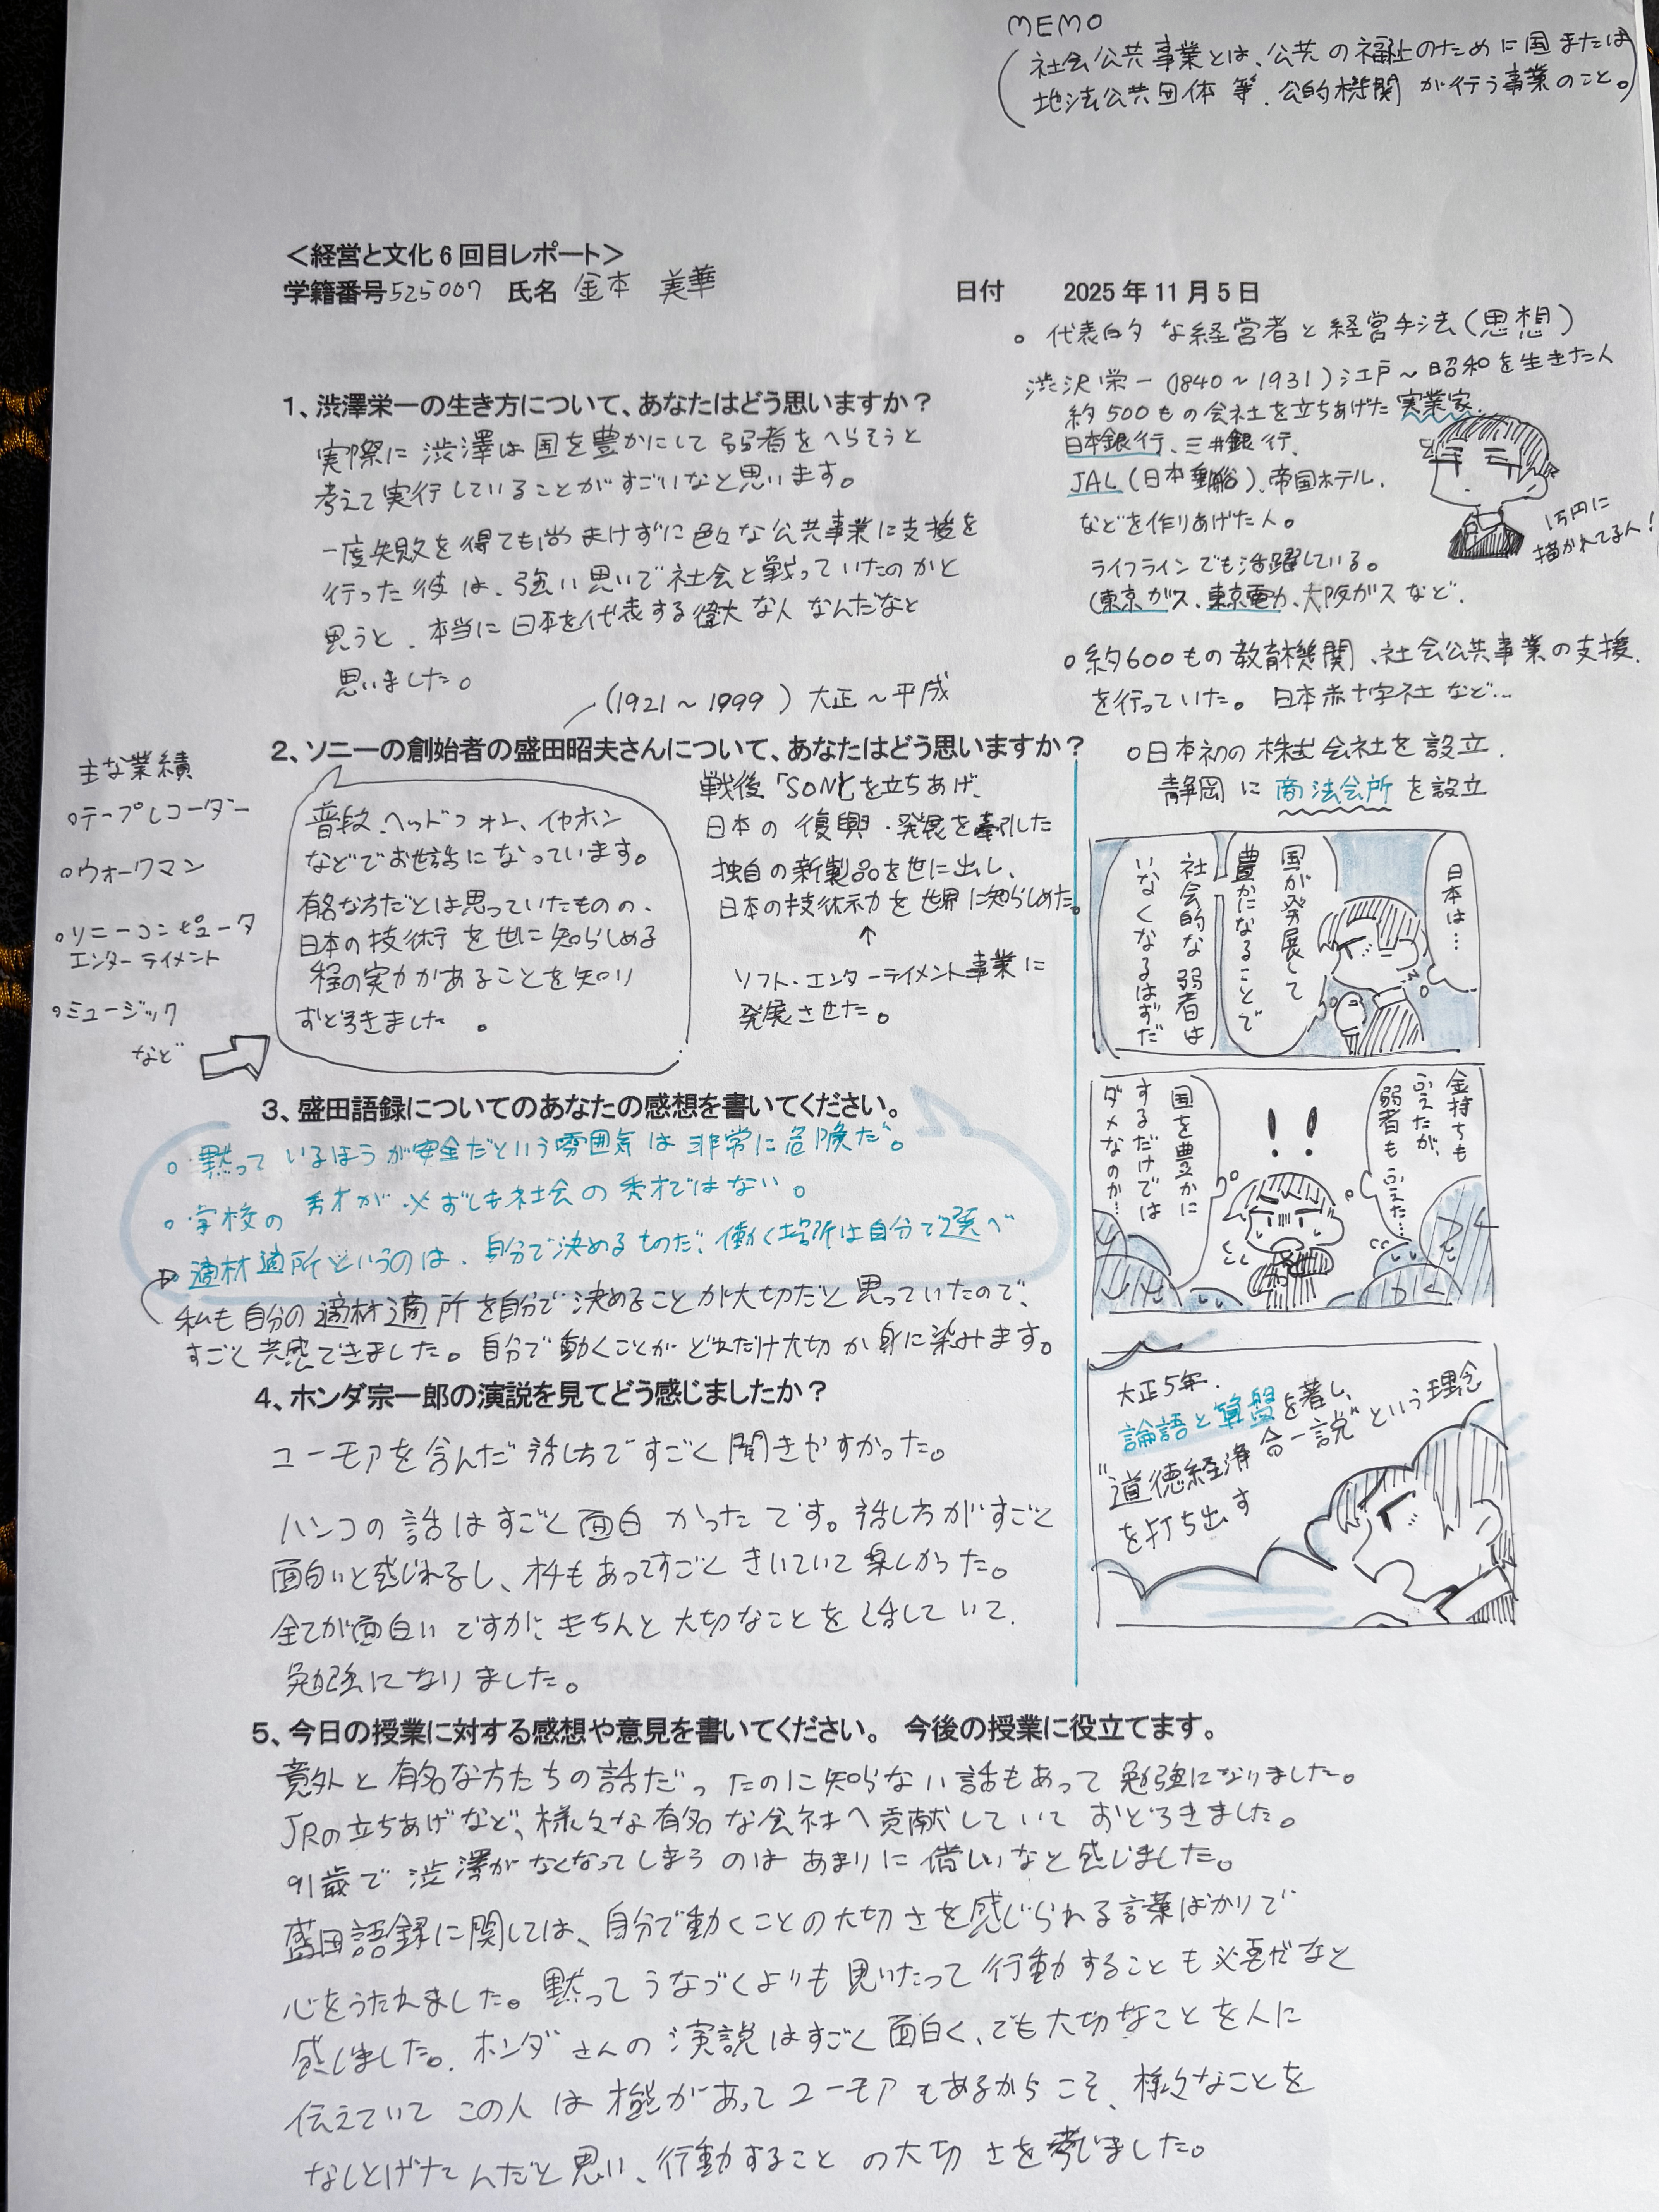 MEMO
(社会公共事業とは、公共の福祉のために国または
地法公共団体 等、公的機関 が行う事業のこと。)
＜経営と文化6回目レポート＞
学籍番号525007 氏名 金本 美華
日付 2025年11月5日
1、渋澤栄一の生き方について、あなたはどう思いますか？
実際に渋澤は国を豊かにして弱者をへらそうと
考えて実行していることがすごいなと思います。
一度失敗を得ても尚まけずに色々な公共事業に支援を
行った彼は、強い思いで社会と戦っていたのかと
思うと、本当に日本を代表する偉大な人なんだなと
思いました。
(1921～1999) 大正～平成
2、ソニーの創始者の盛田昭夫さんについて、あなたはどう思いますか？
主な業績
○テープレコーダー
○ウォークマン
○ソニーコンピュータ
エンターテイメント
○ミュージック
など
普段、ヘッドフォン、イヤホン
などでお世話になっています。
有名な方だとは思っていたものの、
日本の技術を世に知らしめる
程の実力があることを知り
おどろきました 。
戦後「SONY」を立ちあげ、
日本の復興・発展を牽引した
独自の新製品を世に出し、
日本の技術力を世界に知らしめた。
↑
ソフト・エンターテイメント事業に
発展させた。
3、盛田語録についてのあなたの感想を書いてください。
○黙っているほうが安全だという雰囲気は非常に危険だ。
○学校の 秀才が必ずしも社会の秀才ではない。
○適材適所というのは、自分で決めるものだ、働く場所は自分で選べ
私も自分の適材適所を自分で決めることが大切だと思っていたので、
すごく共感できました。自分で動くことがどれだけ大切か身に染みます。
4、ホンダ宗一郎の演説を見てどう感じましたか？
ユーモアを含んだ話し方ですごく聞きやすかった。
ハンコの話はすごく面白かったです。話し方がすごく
面白いと感じれるし、オチもあってすごくきいていて楽しかった。
全てが面白いですが、きちんと大切なことを話していて、
勉強になりました。
5、今日の授業に対する感想や意見を書いてください。 今後の授業に役立てます。
意外と有名な方たちの話だったのに知らない話もあって勉強になりました。
JRの立ちあげなど、様々な有名な会社へ貢献していておどろきました。
91歳で渋澤がなくなってしまうのはあまりに惜しいなと感じました。
盛田語録に関しては、自分で動くことの大切さを感じられる言葉ばかりで
心をうたれました。黙ってうなづくよりも思いたって行動することも必要だなと
感じました。ホンダさんの演説はすごく面白く、でも大切なことを人に
伝えていてこの人は機能があってユーモアもあるからこそ、様々なことを
なしとげたんだと思い、行動することの大切さを考じました。
○代表的な経営者と経営手法(思想)
渋沢栄一(1840～1931)江戸～昭和を生きた人
約500もの会社を立ちあげた実業家。
日本銀行、三井銀行、
JAL(日本郵船)、帝国ホテル、
などを作りあげた人。
1万円に
描かれてる人！
ライフラインでも活躍している。
(東京ガス、東京電力、大阪ガスなど、
○約600もの教育機関、社会公共事業の支援、
を行っていた。日本赤十字社など…
○日本初の株式会社を設立、
静岡に商法会所を設立
日本は…
国が発展して
豊かになることで
社会的な弱者は
いなくなるはずだ
金持ちも
ふえたが、
弱者もふえた…
!!
国を豊かに
するだけでは
ダメなのか…
大正5年、
論語と算盤を著し、
"道徳経済合一説"という理念
を打ち出す